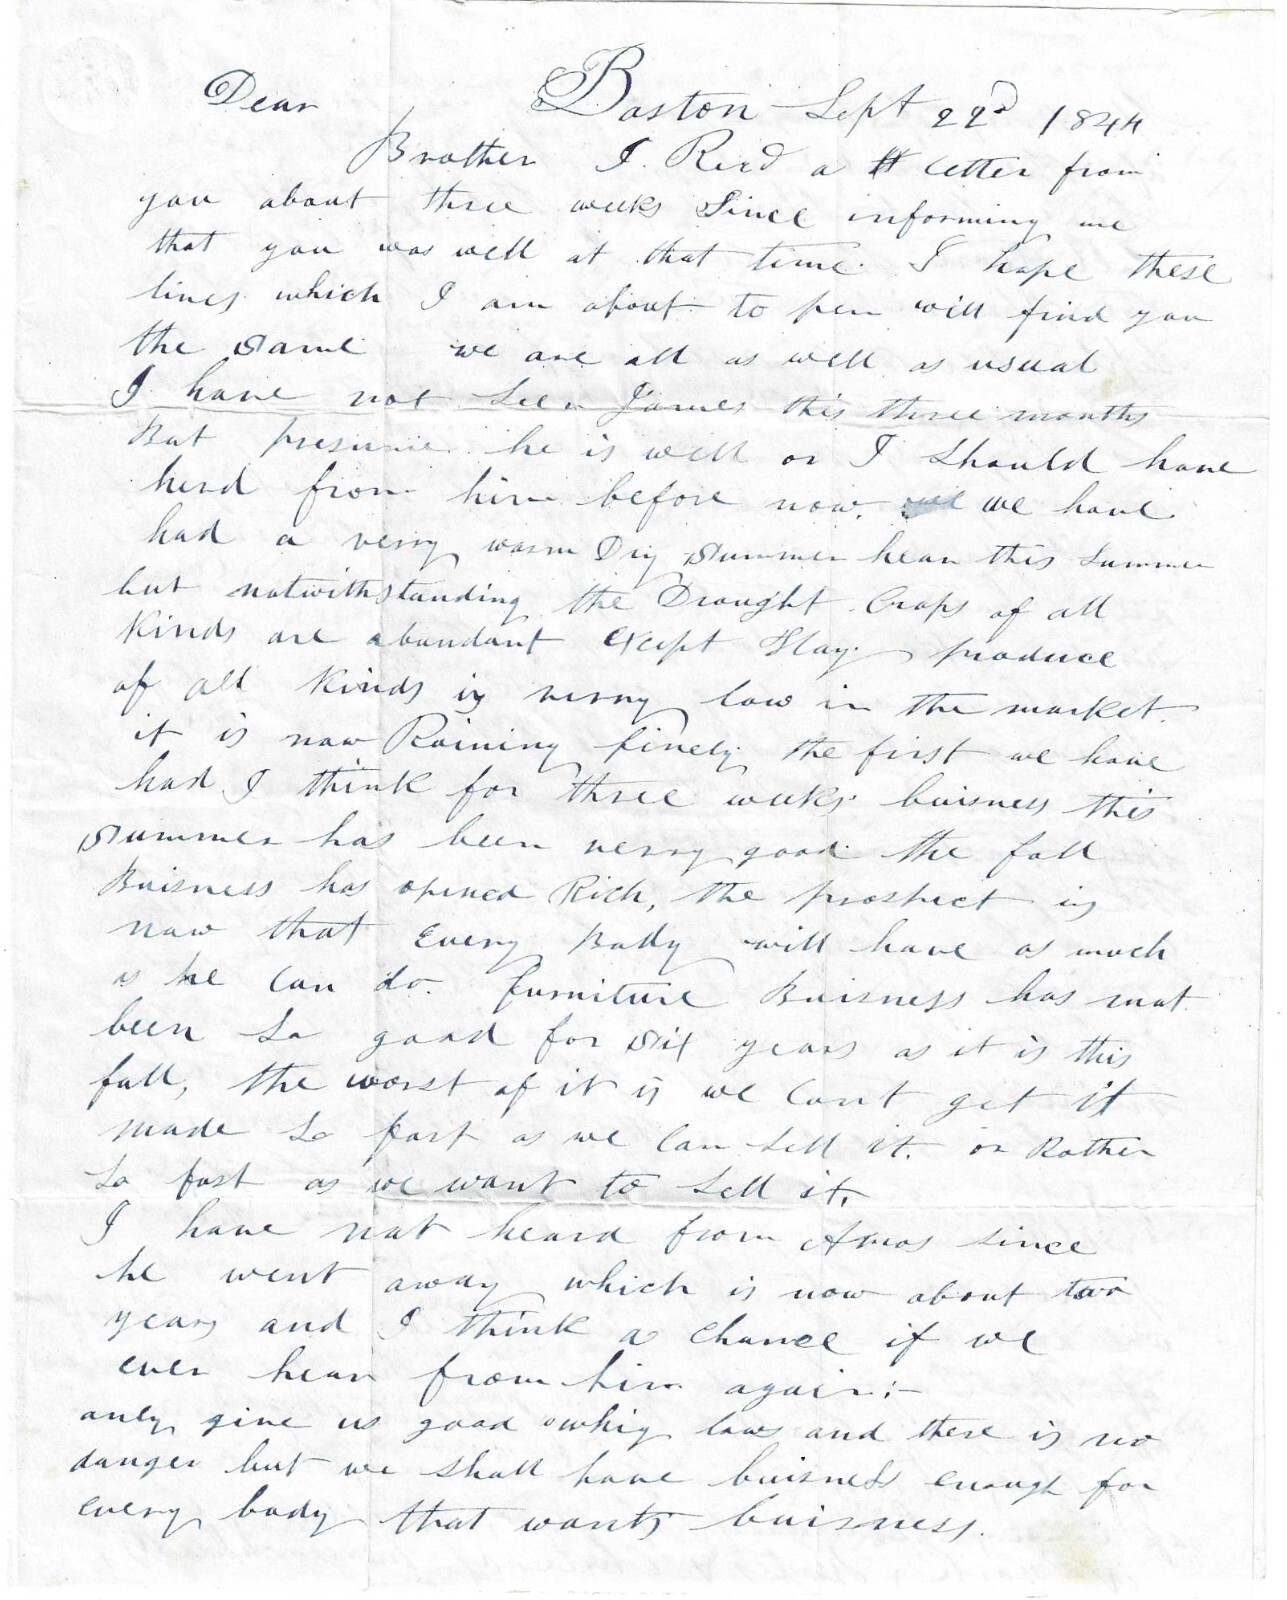 Boston Sept 22d 1844
Dear
Brother I Recd a letter from
you about three weeks Since informing me
that you was well at that time. I hope these
lines which I am about to pen will find you
the Same we are all as well as usual
I have not Seen James this three months
But presume he is well or I Should have
herd from him before now. we have
had a verry warm Dry Summer hear this Summer
but notwithstanding the Drought Crops of all
Kinds are abundant Except Hay. produce
of all Kinds is verry low in the market.
it is now Raining finely the first we have
had I think for three weeks. buisness this
Summer has been verry good. the fall
Buisness has opened Rich, the prospect is
now that Every Body will have as much
as he Can do. furniture Buisness has not
been So good for Six years as it is this
fall, the worst of it is we Cant get it
made So fast as we Can Sell it. or Rather
So fast as we want to Sell it.
I have not heard from Amos Since
he went away which is now about two
years and I think a Chance if we
ever hear from him again:-
only give us good whig laws and there is no
danger but we Shall have buisness enough for
every body that wants buisness.